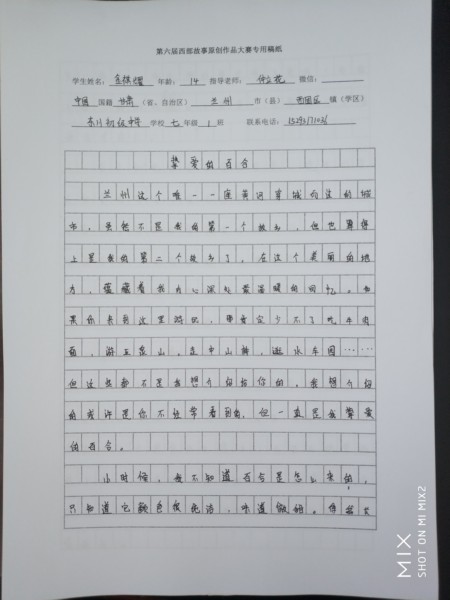 第六届西部故事原创作品大赛专用稿纸
学生姓名：金祺耀 年龄：14 指导老师： 微信：
中国 国籍 甘肃（省、自治区） 兰州 市（县） 西固区 镇（学区）
东川初级中学 学校 七 年级 1 班 联系电话：
挚爱的百合
兰州这个唯一一座黄河穿城而过的城
市，虽然不是我的第一个故乡，但也算得
上是我的第二个故乡了。在这个美丽的地
方，蕴藏着我内心深处最温暖的回忆。如
果你来到这里游玩，那肯定少不了吃牛肉
面，游五泉山，逛中山桥，逛水车园……
但这些都不是我想介绍给你的，我想介绍
的或许是你不经常看到的，但一直是我挚爱
的百合。
小时候，我不知道百合是怎么来的，
只知道它颜色很纯洁，味道微甜。
MIX
SHOT ON MI MIX2